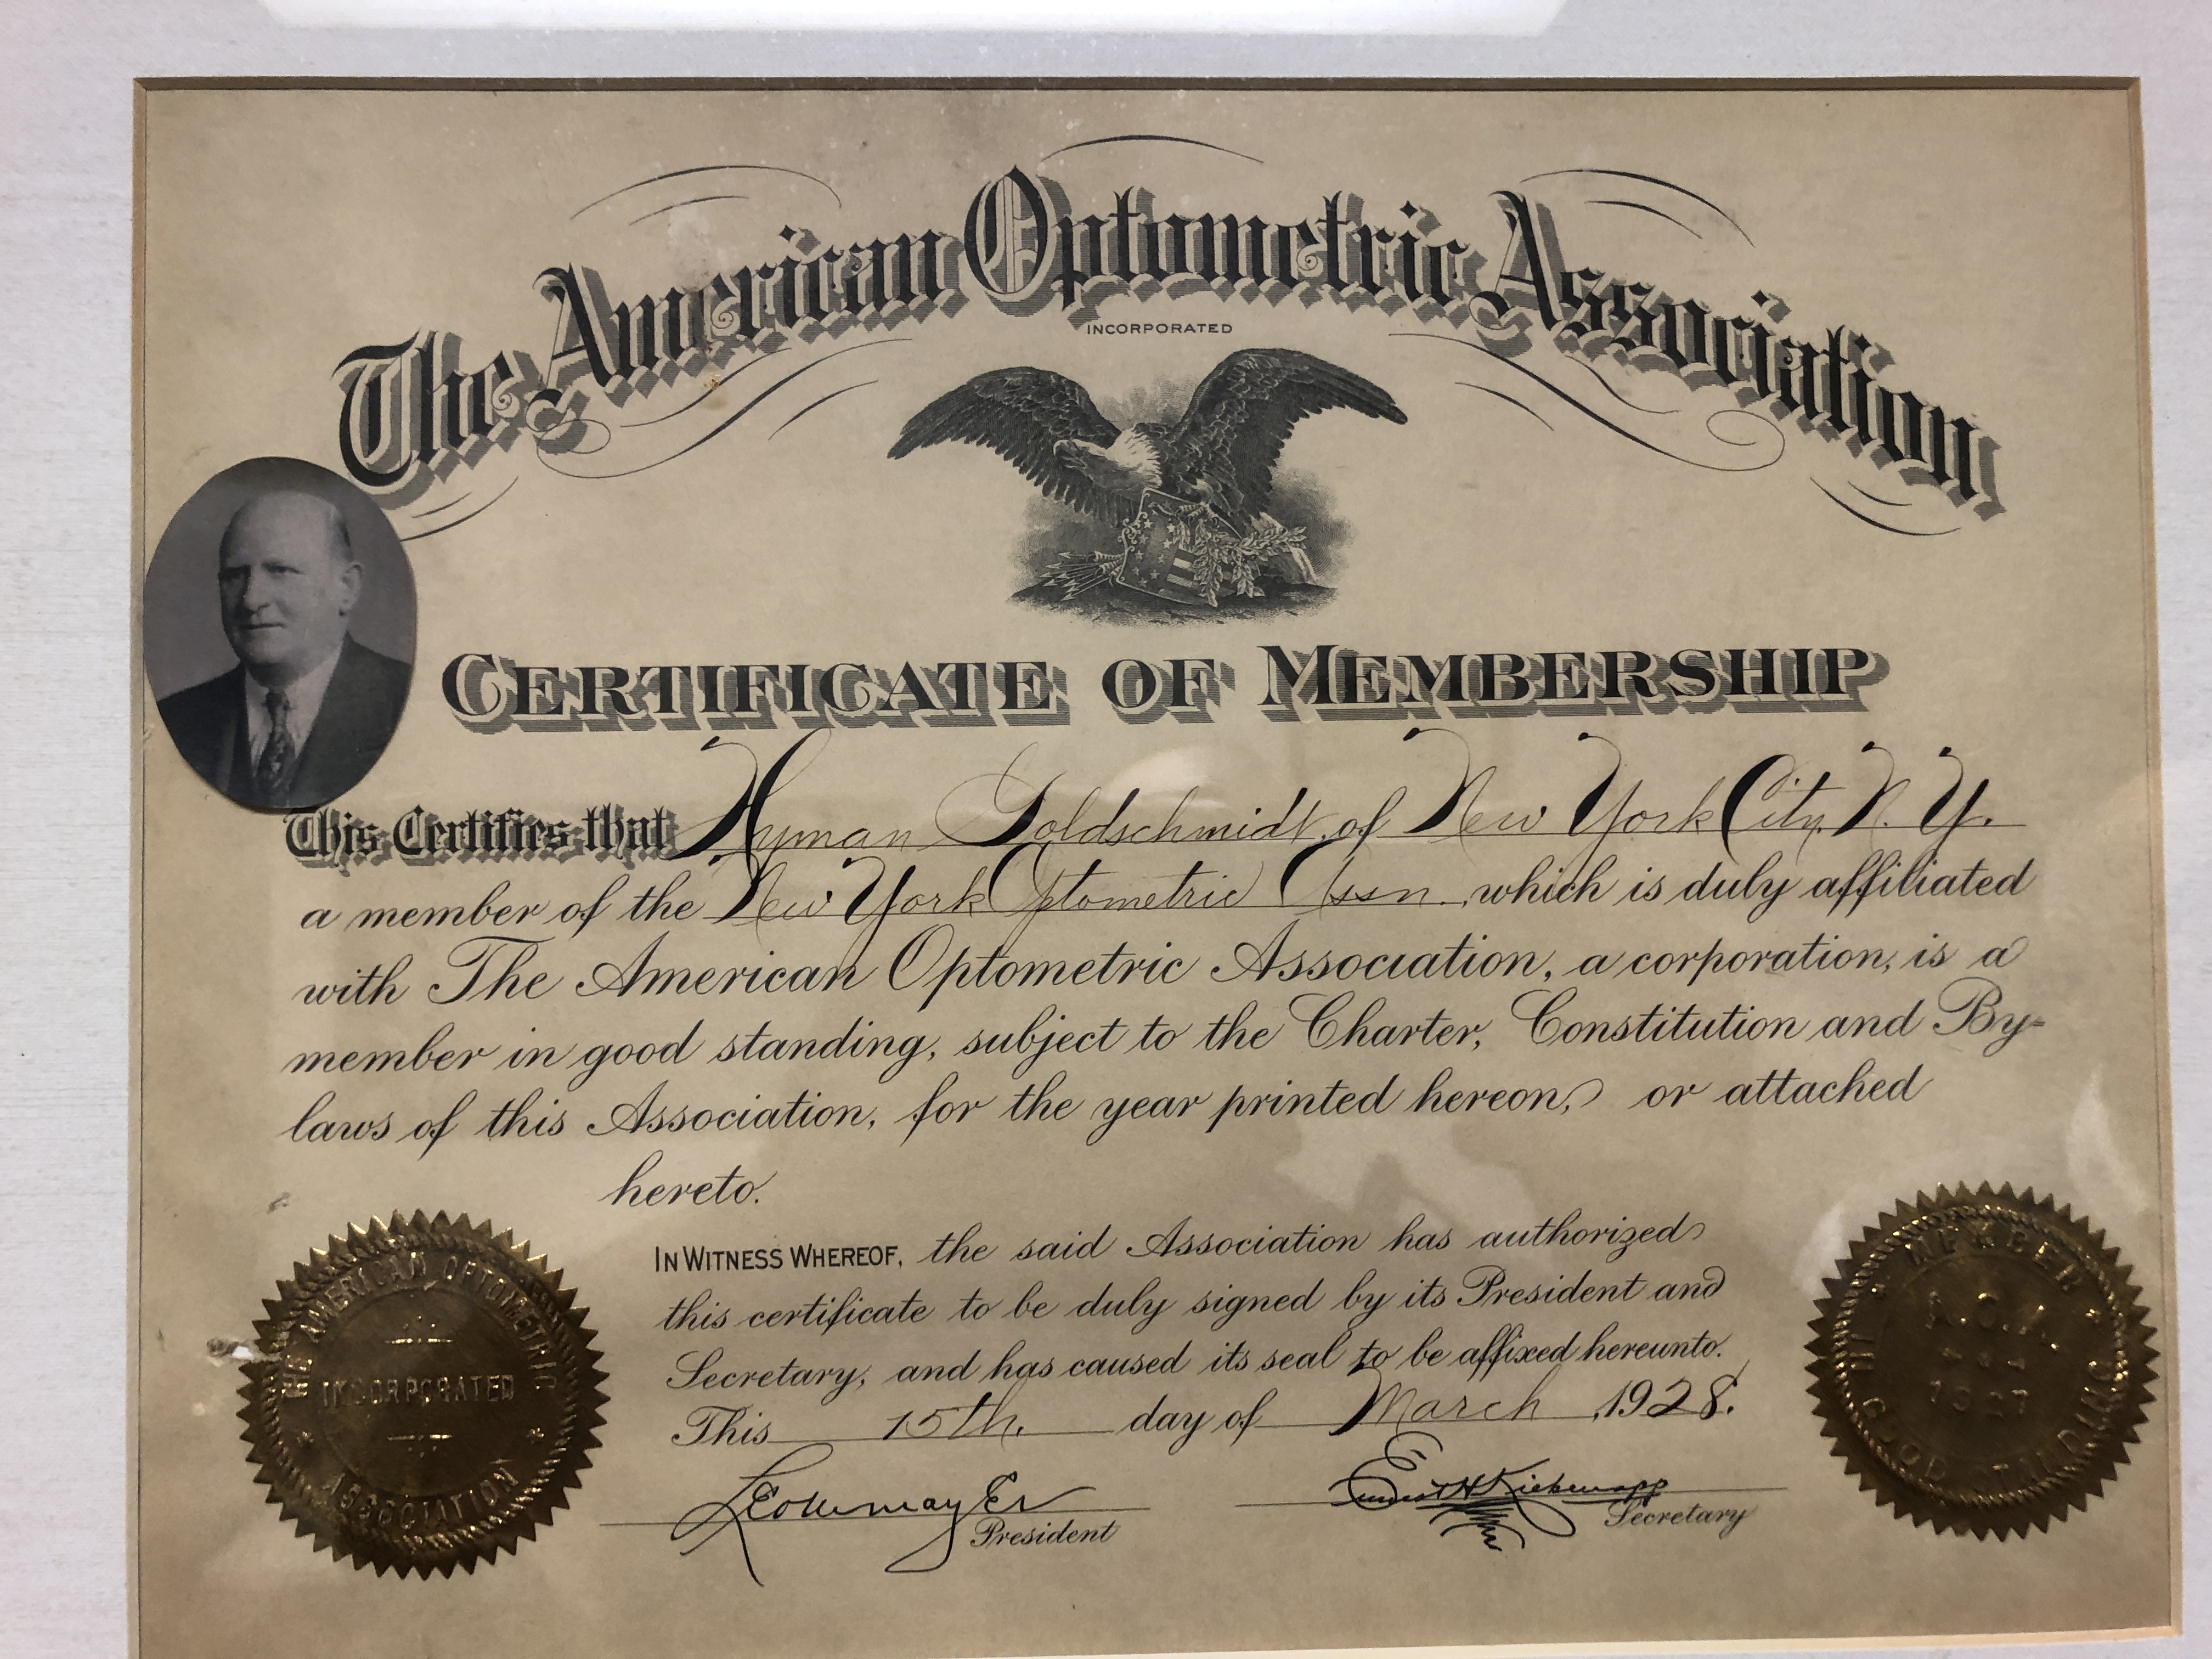 The American Optometric Association
INCORPORATED
CERTIFICATE OF MEMBERSHIP
This Certifies that Hyman Goldschmidt, of New York City, N. Y.
a member of the New York Optometric Assn. which is duly affiliated
with The American Optometric Association, a corporation, is a
member in good standing, subject to the Charter, Constitution and By-
laws of this Association, for the year printed hereon, or attached
hereto.
IN WITNESS WHEREOF, the said Association has authorized
this certificate to be duly signed by its President and
Secretary, and has caused its seal to be affixed hereunto.
This 15th. day of March, 1928.
President
Secretary
THE AMERICAN OPTOMETRIC
INCORPORATED
ASSOCIATION
MEMBER
A.O.A.
1927
IN GOOD STANDING